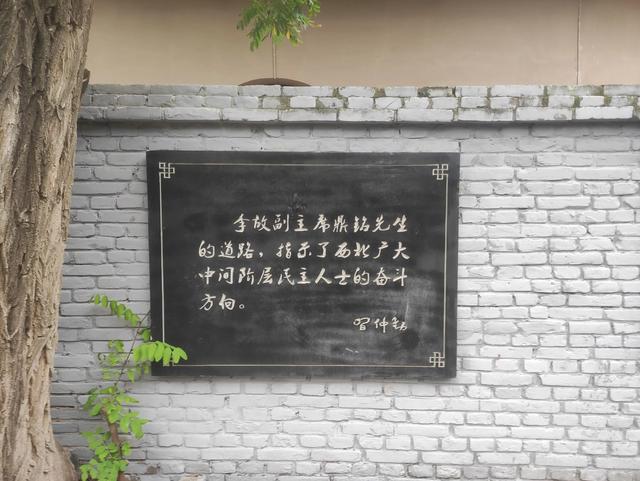 李故副主席鼎铭先生
的道路，指示了西北广大
中间阶层民主人士的奋斗
方向。
习仲勋